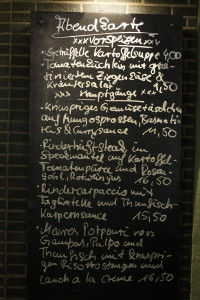 Abendkarte
xxx Vorspeisen xxx
· Getrüffelte Kartoffelsuppe 4,00
· Tomatentürmchen mit gra-
tiniertem Ziegenkäse &
Kräutersalat
xxx Hauptgänge xxx
· Knuspriges Gemüsetäschchen
auf Mungosprossen, Basmati-
reis & Currysauce 11,50
· Rinderhüftsteak im
Speckmantel auf Kartoffel-
Tomatenpüree und Rosma-
rin, Rotweinjus 16,50
· Rindercarpaccio mit
Tagliatelle und Thunfisch-
Kapernsauce 15,50
· Meeres Potpouri von
Gambas, Pulpo und
Thunfisch mit knuspri-
gen Risottostangen und
Lauch a la Creme 16,50